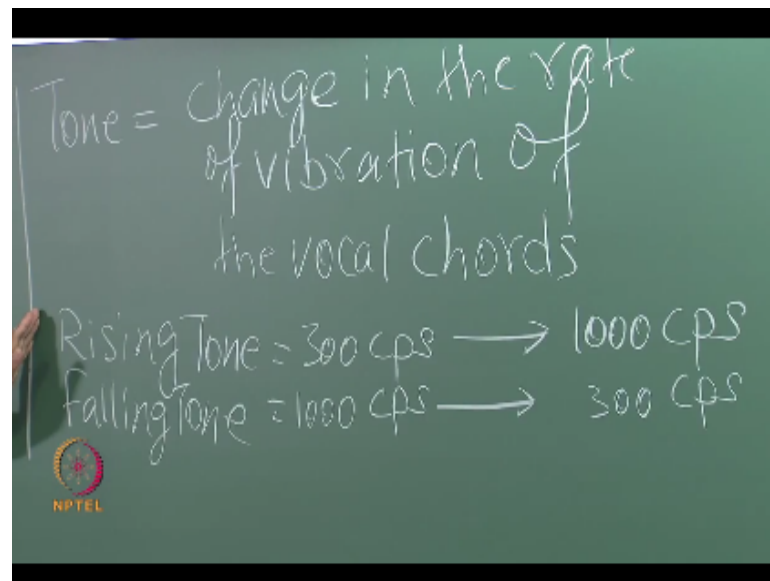 Tone = change in the rate
of vibration of
the vocal chords
Rising Tone = 300 cps → 1000 cps
Falling Tone = 1000 cps → 300 cps
NPTEL